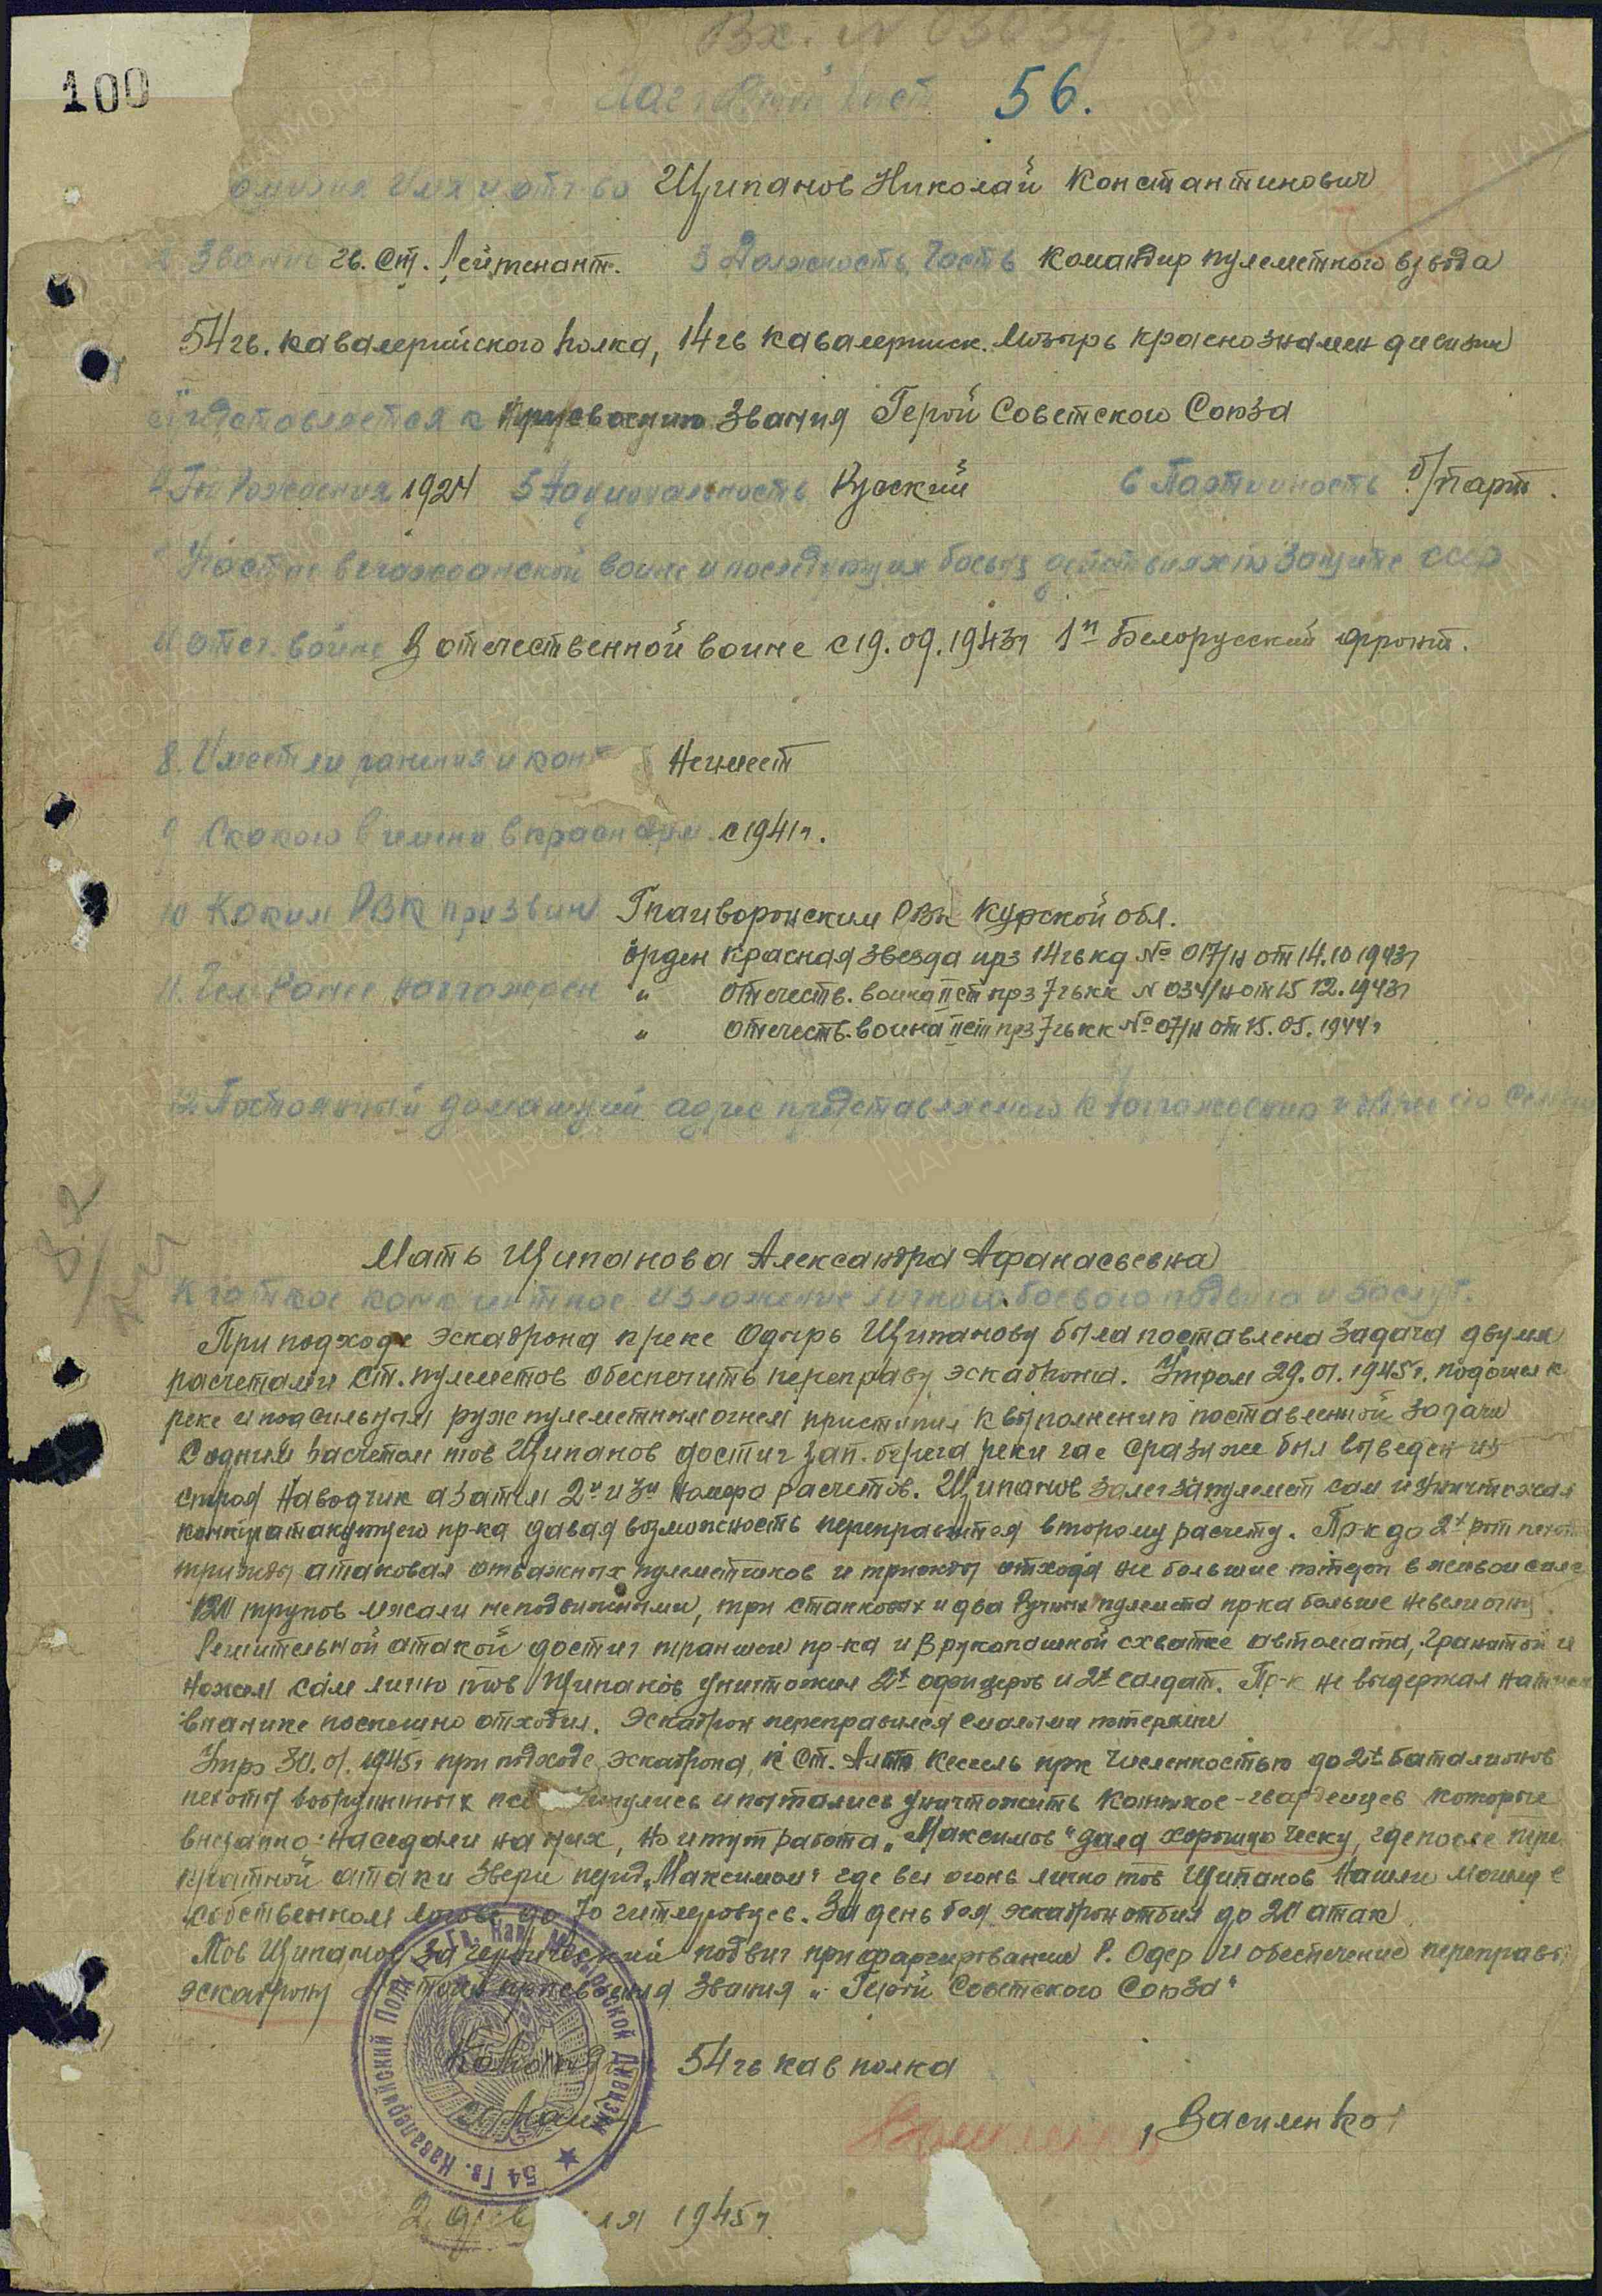 Вх. N 03039. 3. 2. 45г.
100
Наградной лист 56.
Фамилия Имя и отч-во Щипанов Николай Константинович
2 Звание гв. Ст. Лейтенант. 3 Должность, Часть командир пулеметного взвода
54 гв. кавалерийского полка, 14 гв кавалерийск. Мозырь краснознамен дивизии
Представляется к присвоению звания Герой Советского Союза
4 Год Рождения 1924 5 Национальность Русский 6 Партийность б/парт.
Участие в гражданской войне и последующих боевых действиях по защите СССР
и отеч. войне В отечественной войне с 19.09.1943г 1й Белорусский фронт.
8. Имеет ли ранения и кон Не имеет
9 С какого времени в красн арм с 1941г.
10 Каким РВК призван Грайворонским РВК Курской обл.
орден красная звезда прз 14 гв кд № 017/н от 14.10 1943г
11. Чем Ранее награжден " отечеств. война II ст прз 7 гв кк N 034/н от 15 12. 1943г
" отечеств. война II ст прз 7 гв кк № 07/н от 15.05.1944г
12 Постоянный домашний адрес представляемого к награждению и адрес его семьи
Мать Щипанова Александра Афанасьевна
Краткое конкретное изложение личного боевого подвига и заслуг.
При подходе эскадрона к реке Одырь Щипанову была поставлена задача двумя
расчетами ст. пулеметов обеспечить переправу эскадрона. Утром 29.01.1945г. подошел к
реке и под сильным руж пулеметным огнем приступил к выполнению поставленной задачи
С одним расчетом тов Щипанов достиг зап. берега реки где сразу же был выведен из
строя наводчик а затем 2й и 3й номера расчетов. Щипанов залег за пулемет сам и уничтожал
контратакующего пр-ка давая возможность переправится второму расчету. Пр-к до 2х рот пехоты
трижды атаковал отважных пулеметчиков и трижды отходя не большие потери в живой силе
120 трупов лежали неподвижными, три станковых и два ручных пулемета пр-ка больше не
Решительной атакой достиг траншеи пр-ка и в рукопашной схватке автомата, гранатой и
ножем сам лично тов Щипанов уничтожил 2х офицеров и 2х солдат. Пр-к не выдержал натиска
в панике поспешно отходил. Эскадрон переправился с малыми потерями
Утро 30.01.1945г при подходе эскадрона к ст. Альт Кессель прк численностью до 2х баталионов
пехоты вооруженных и пытались уничтожить конников-гвардейцев которые
внезапно наседали на них, но и тут работа „Максимов" дала хорошую ческу, где после
кратной атаки звери перед „Максимом" где вел огонь лично тов Щипанов нашли могилу в
собственном логове до 70 гитлеровцев. За день боя эскадрон отбил до 20 атак
Тов Щипанов за героический подвиг при фарсировании р. Одер и обеспечение переправы
эскадрону достоин присвоения звания „Герой Советского Союза"
Командир 54 гв кав полка
Василенко
54 Гв. Кавалерийский Полк Гв. Кав. Мозырской Дивизии
2 февраля 1945г